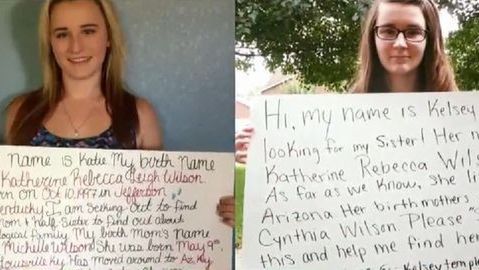 Name is Katie. My birth Name
Katherine Rebecca Leigh Wilson
on Oct 10, 1997 in Jefferson
I am Seeking Out to find
mom & Half Sister to find out about
family. My birth Mom's Name
Michelle Wilson She was born May 9th
Has moved around to Az, Ky
Hi, my name is Kelsey
looking for my Sister! Her
Katherine Rebecca
As far as we know, she
Arizona Her birthmothers
Cynthia Wilson Please
this and help me find